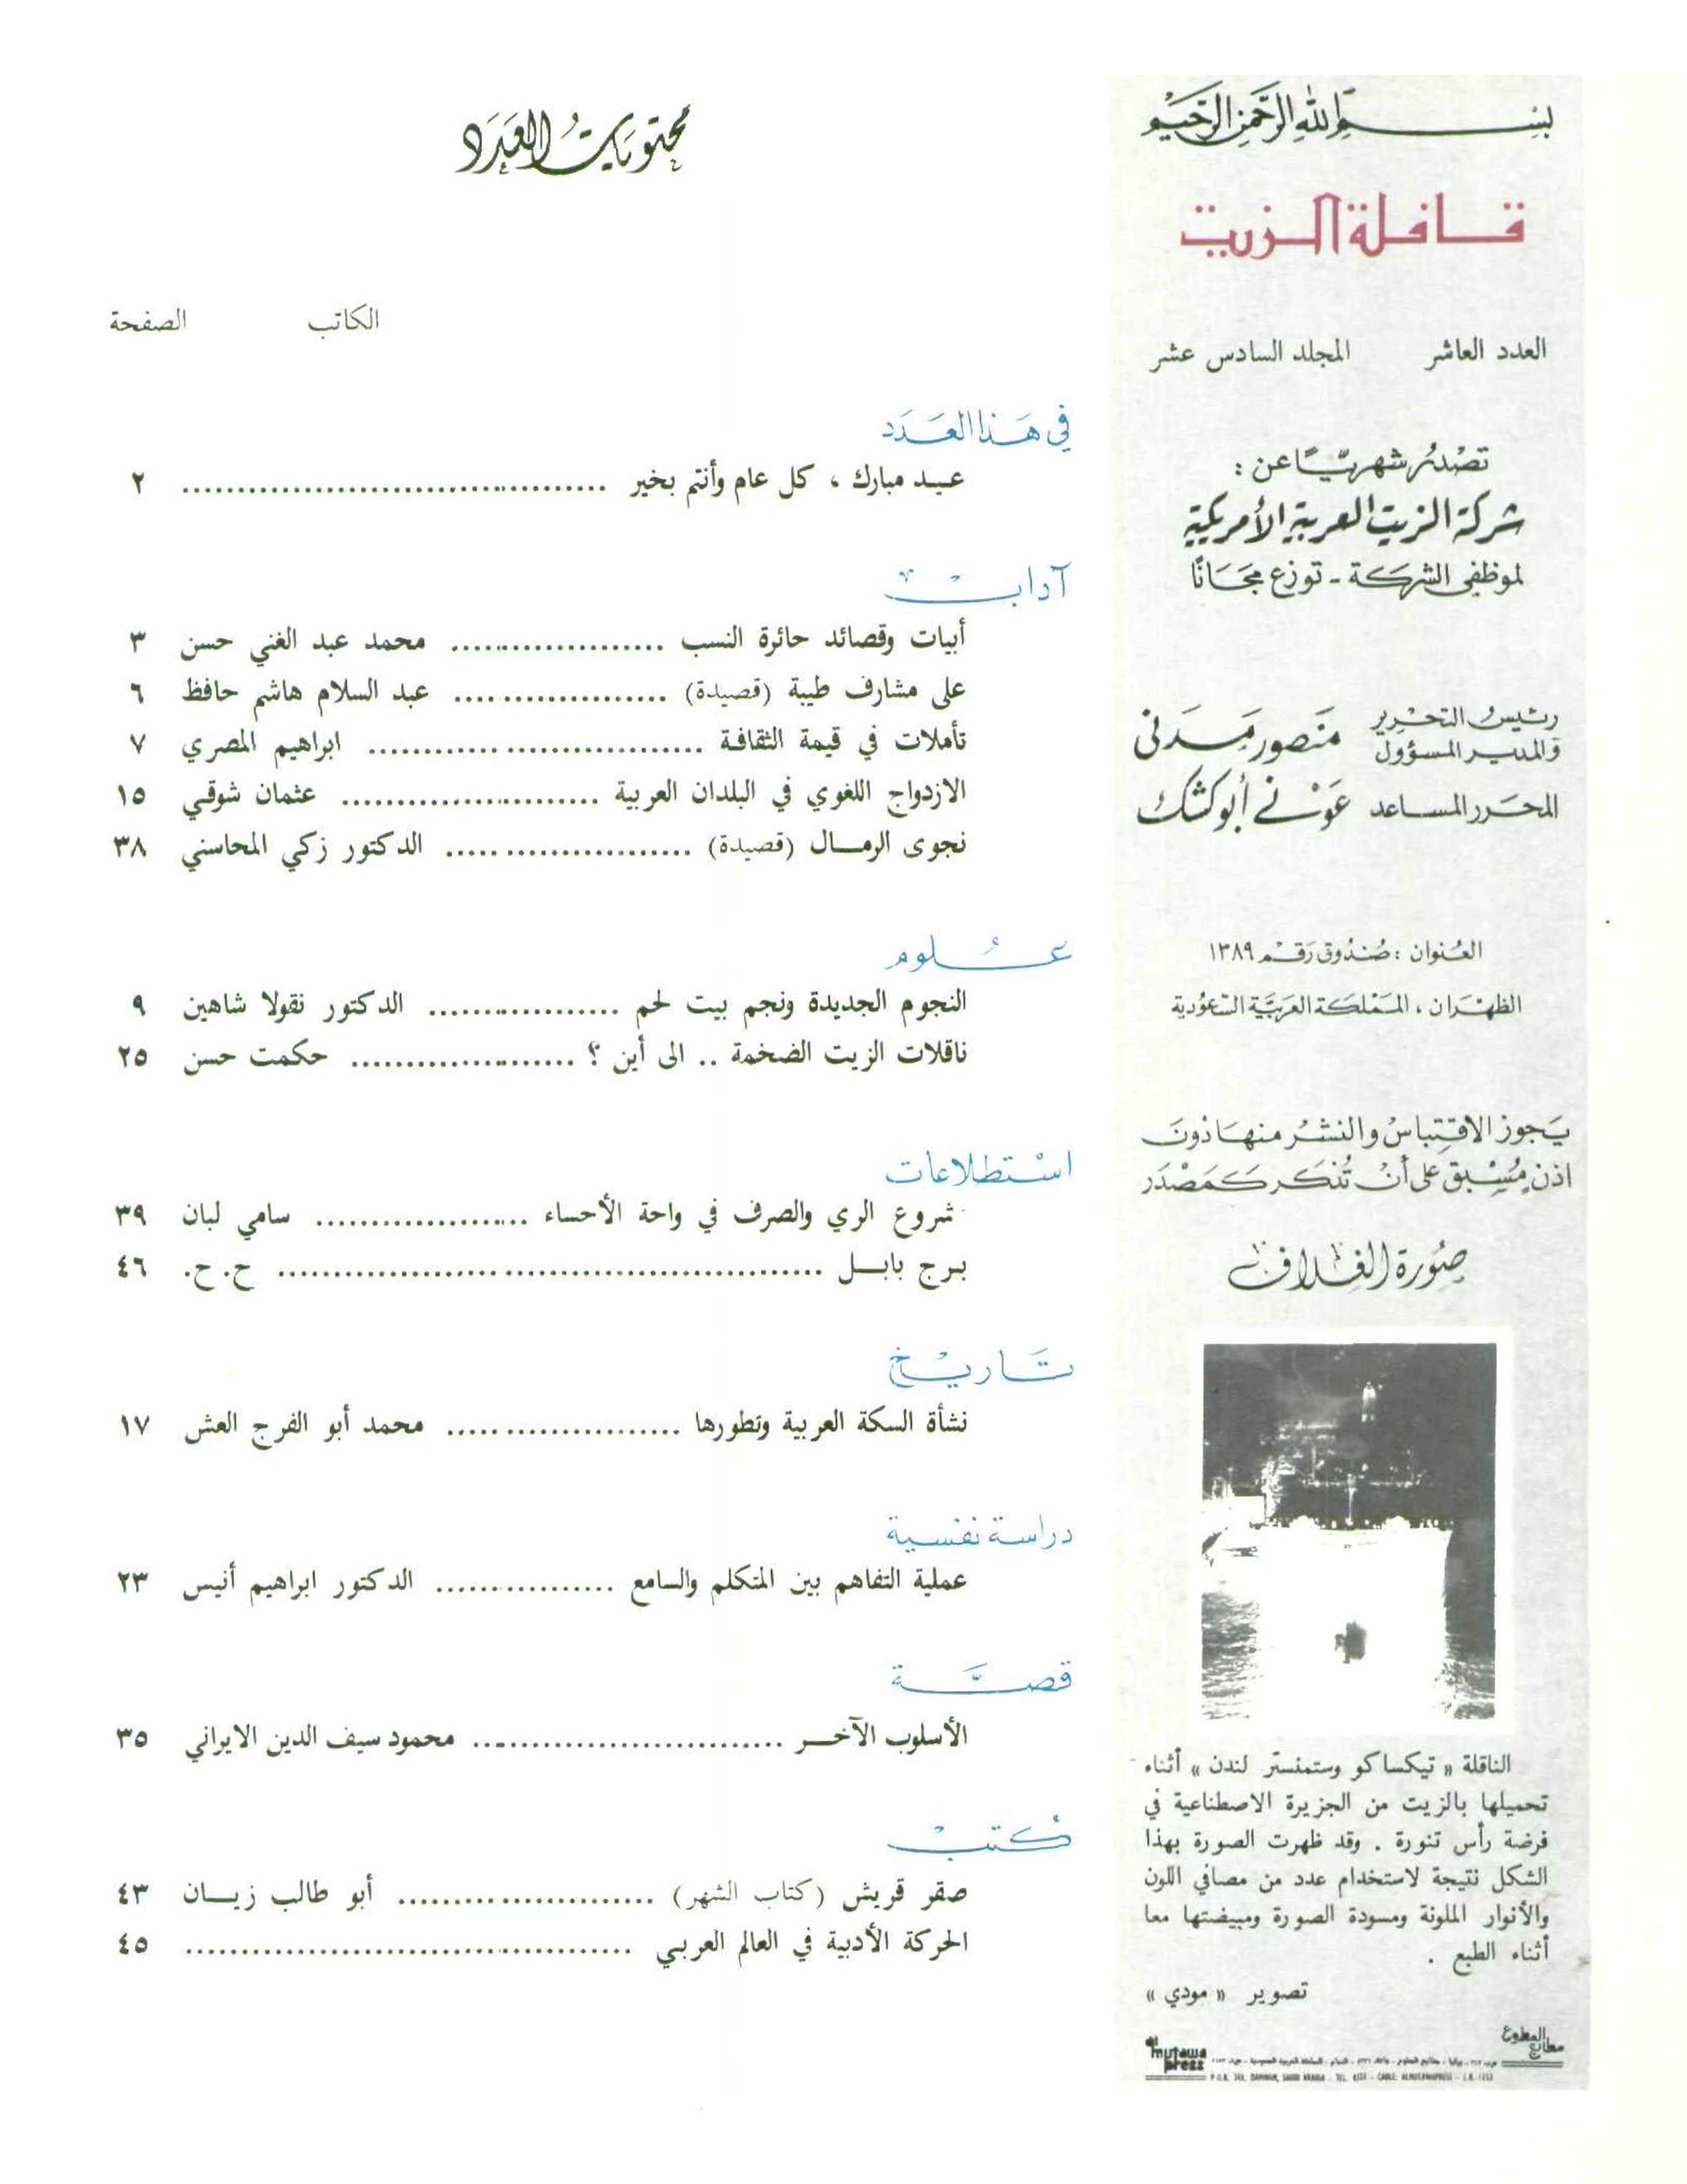 بسم الله الرحمن الرحيم
قافلة الزيت
العدد العاشر المجلد السادس عشر
تصدر شهريًا عن :
شركة الزيت العربية الأمريكية
لموظفي الشركة - توزع مجانًا
رئيس التحرير
والمدير المسؤول منصور مدني
المحرر المساعد عوني أبو كشك
العنوان : صندوق رقم ١٣٨٩
الظهران ، المملكة العربية السعودية
يجوز الاقتباس والنشر منها دون
اذن مسبق على أن تذكر كمصدر
صورة الغلاف
الناقلة « تيكساكو وستمنستر لندن » أثناء
تحميلها بالزيت من الجزيرة الاصطناعية في
فرضة رأس تنورة . وقد ظهرت الصورة بهذا
الشكل نتيجة لاستخدام عدد من مصافي اللون
والأنوار الملونة ومسودة الصورة ومبيضتها معا
أثناء الطبع .
تصوير « مودي »
مطابع المطوع
al mutawa press
محتويات العدد
الكاتب الصفحة
في هذا العدد
عيد مبارك ، كل عام وأنتم بخير ........ ٢
آداب
أبيات وقصائد حائرة النسب ........ محمد عبد الغني حسن ٣
على مشارف طيبة (قصيدة) ........ عبد السلام هاشم حافظ ٦
تأملات في قيمة الثقافة ........ ابراهيم المصري ٧
الازدواج اللغوي في البلدان العربية ........ عثمان شوقي ١٥
نجوى الرمال (قصيدة) ........ الدكتور زكي المحاسني ٣٨
علوم
النجوم الجديدة ونجم بيت لحم ........ الدكتور نقولا شاهين ٩
ناقلات الزيت الضخمة .. الى أين ؟ ........ حكمت حسن ٢٥
استطلاعات
شروع الري والصرف في واحة الأحساء ........ سامي لبان ٣٩
برج بابل ........ ح. ح. ٤٦
تاريخ
نشأة السكة العربية وتطورها ........ محمد أبو الفرج العش ١٧
دراسة نفسية
عملية التفاهم بين المتكلم والسامع ........ الدكتور ابراهيم أنيس ٢٣
قصة
الأسلوب الآخر ........ محمود سيف الدين الايراني ٣٥
كتب
صقر قريش (كتاب الشهر) ........ أبو طالب زيان ٤٣
الحركة الأدبية في العالم العربي ........ ٤٥